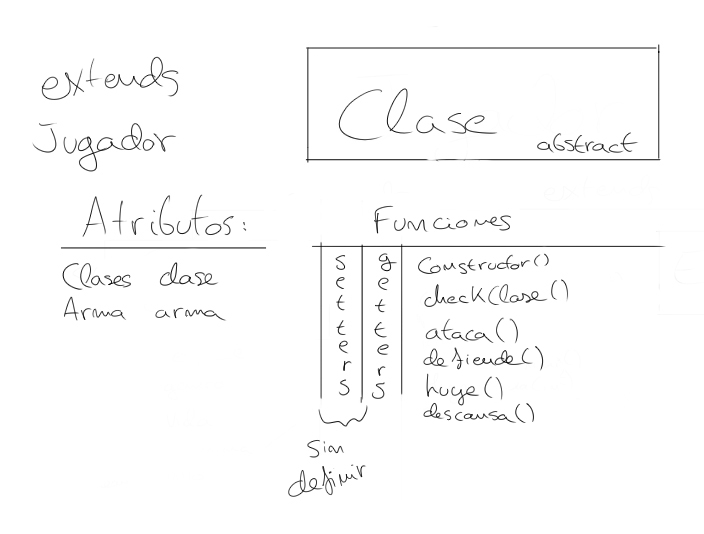 extends
Jugador
Clase
abstract
Atributos:
Clases clase
Arma arma
Funciones
setters
getters
Constructor()
checkClase()
ataca()
defiende()
huye()
descansa()
Sin
definir